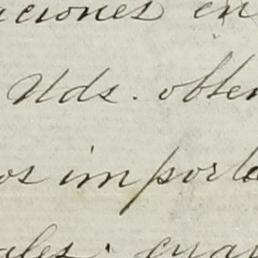 aciones en
Uds. obten
os importa
ales; cuan